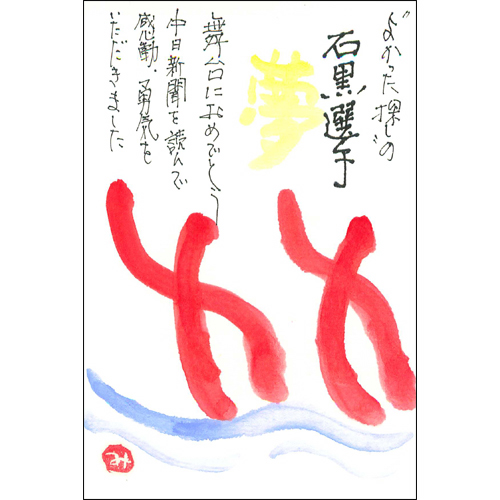 “よかった探しの〟
石黒選手
夢
舞台におめでとう
中日新聞を読んで
感動・勇気を
いただきました
み